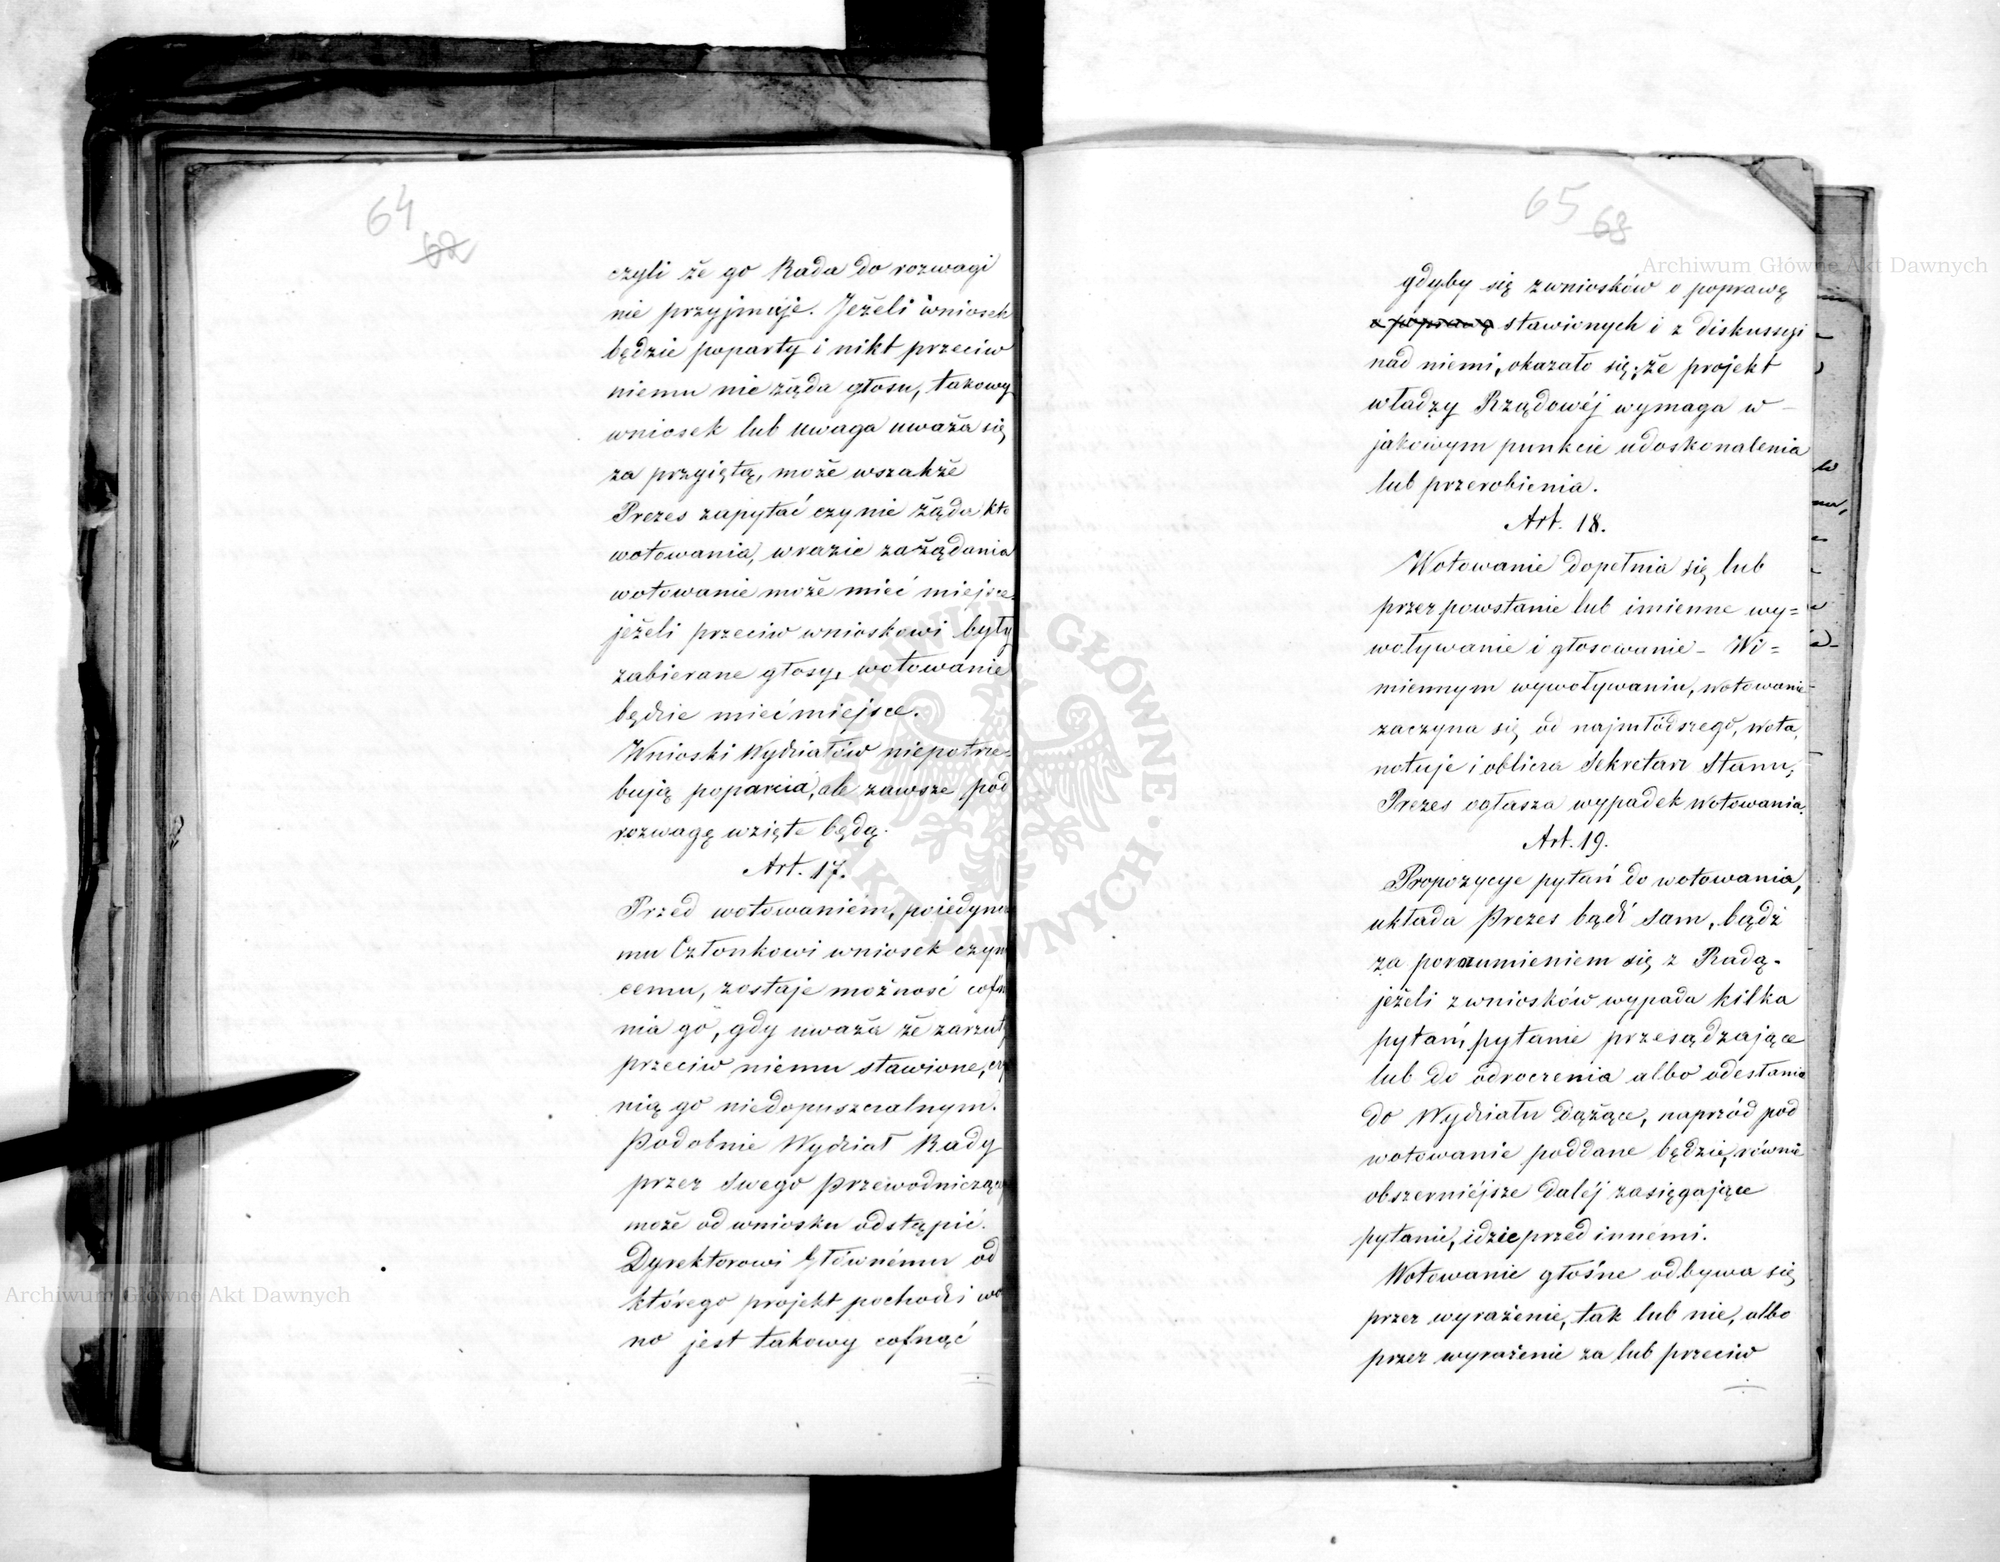 64
62
czyli że go Rada do rozwagi
nie przyjmuje. Jeżeli wniosek
będzie poparty i nikt przeciw
niemu nie żąda głosu, takowy
wniosek lub uwaga uważa się
za przyiętą, może wszakże
Prezes zapytać czy nie żąda kto
wotowania, w razie zażądania
wotowanie może mieć miejsce.
jeżeli przeciw wnioskowi były
zabierane głosy, wotowanie
będzie mieć miejsce.
Wnioski Wydziałów niepotrze-
bują poparcia, ale zawsze pod
rozwagę wzięte będą.
Art. 17.
Przed wotowaniem, pojedyncze
mu Członkowi wniosek czyn
cemu, zostaje możność cofn
nia go, gdy uważa że zarzuty
przeciw niemu stawione, czy
nią go niedopuszczalnym.
Podobnie Wydział Rady
przez swego Przewodnicząc
może od wniosku odstąpić.
Dyrektorowi Głównému od
którego projekt pochodzi wo
no jest takowy cofnąć
65
63
gdyby się z wniosków o poprawę
o poprawę stawionych i z diskussyi
nad niemi, okazało się, że projekt
władzy Rządowéj wymaga w –
jakowym punkcie udoskonalenia
lub przerobienia.
Art. 18.
Wotowanie dopełnia się lub
przez powstanie lub imienne wy=
woływanie i głosowanie – W i=
miennym wywoływaniu, wotowanie
zaczyna się od najmłódszego, wota,
notuje i oblicza Sekretarz Stanu,
Prezes ogłasza wypadek wotowania.
Art. 19.
Propozycye pytań do wotowania,
układa Prezes bądź sam, bądź
za porozumieniem się z Radą.
jeżeli z wniosków wypada kilka
pytań, pytanie przesądzające
lub do odroczenia albo odesłania
do Wydziału dążące, naprzód pod
wotowanie poddane będzie, równie
obszerniéjsze daléj zasięgające
pytanie, idzie przed innémi.
Wotowanie głośne odbywa się
przez wyrażenie, tak lub nie, albo
przez wyrażenie za lub przeciw
Archiwum Główne Akt Dawnych
Archiwum Główne Akt Dawnych
ARCHIWUM GŁÓWNE AKT DAWNYCH